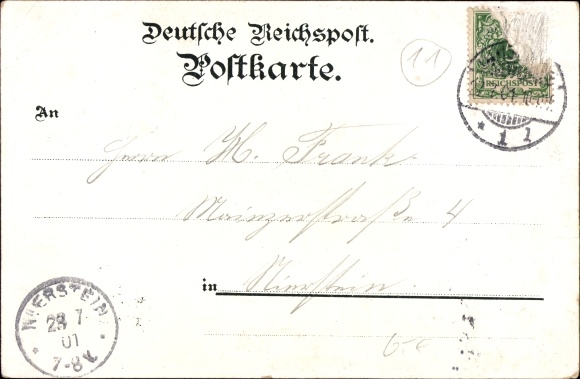 Deutsche Reichspost.
Postkarte.
11
5
REICHSPOST
1 1
An
Herrn H. Frank
Mainzerstraße 4
in Nierstein
NIERSTEIN
7
01
7-8